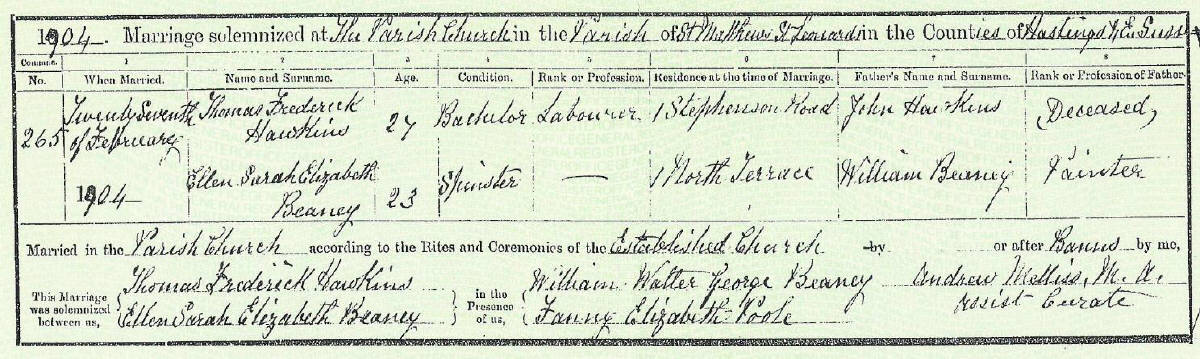 1904. Marriage solemnized at The Parish Church in the Parish of St Matthews St Leonards in the Counties of Hastings & E. Suss
Columns:— 1 2 3 4 5 6 7 8
No. When Married. Name and Surname. Age. Condition. Rank or Profession. Residence at the time of Marriage. Father's Name and Surname. Rank or Profession of Father.
265 Twenty Seventh of February 1904 Thomas Frederick Hawkins 27 Bachelor Labourer 1 Stephenson Road John Hawkins (Deceased)
Ellen Sarah Elizabeth Beaney 23 Spinster — 1 North Terrace William Beaney Painter
Married in the Parish Church according to the Rites and Ceremonies of the Established Church by or after Banns by me,
This Marriage was solemnized between us, Thomas Frederick Hawkins in the Presence of us, William Walter George Beaney Andrew Melliss, M.A.
Ellen Sarah Elizabeth Beaney Fanny Elizabeth Poole Assist Curate